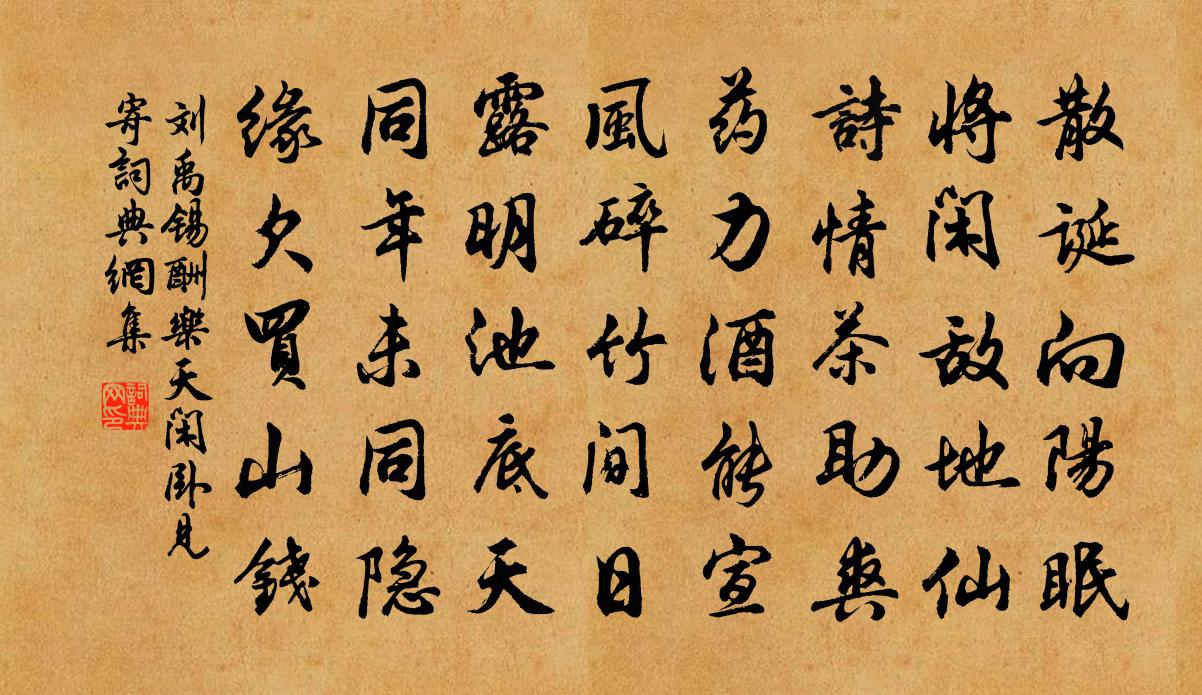 散誕向陽眠
將閑敌地仙
詩情茶助爽
药力酒能宣
風碎竹間日
露明池底天
同年未同隐
缘欠買山錢
刘禹錫酬樂天閑卧見
寄詞典網集
詞典网印